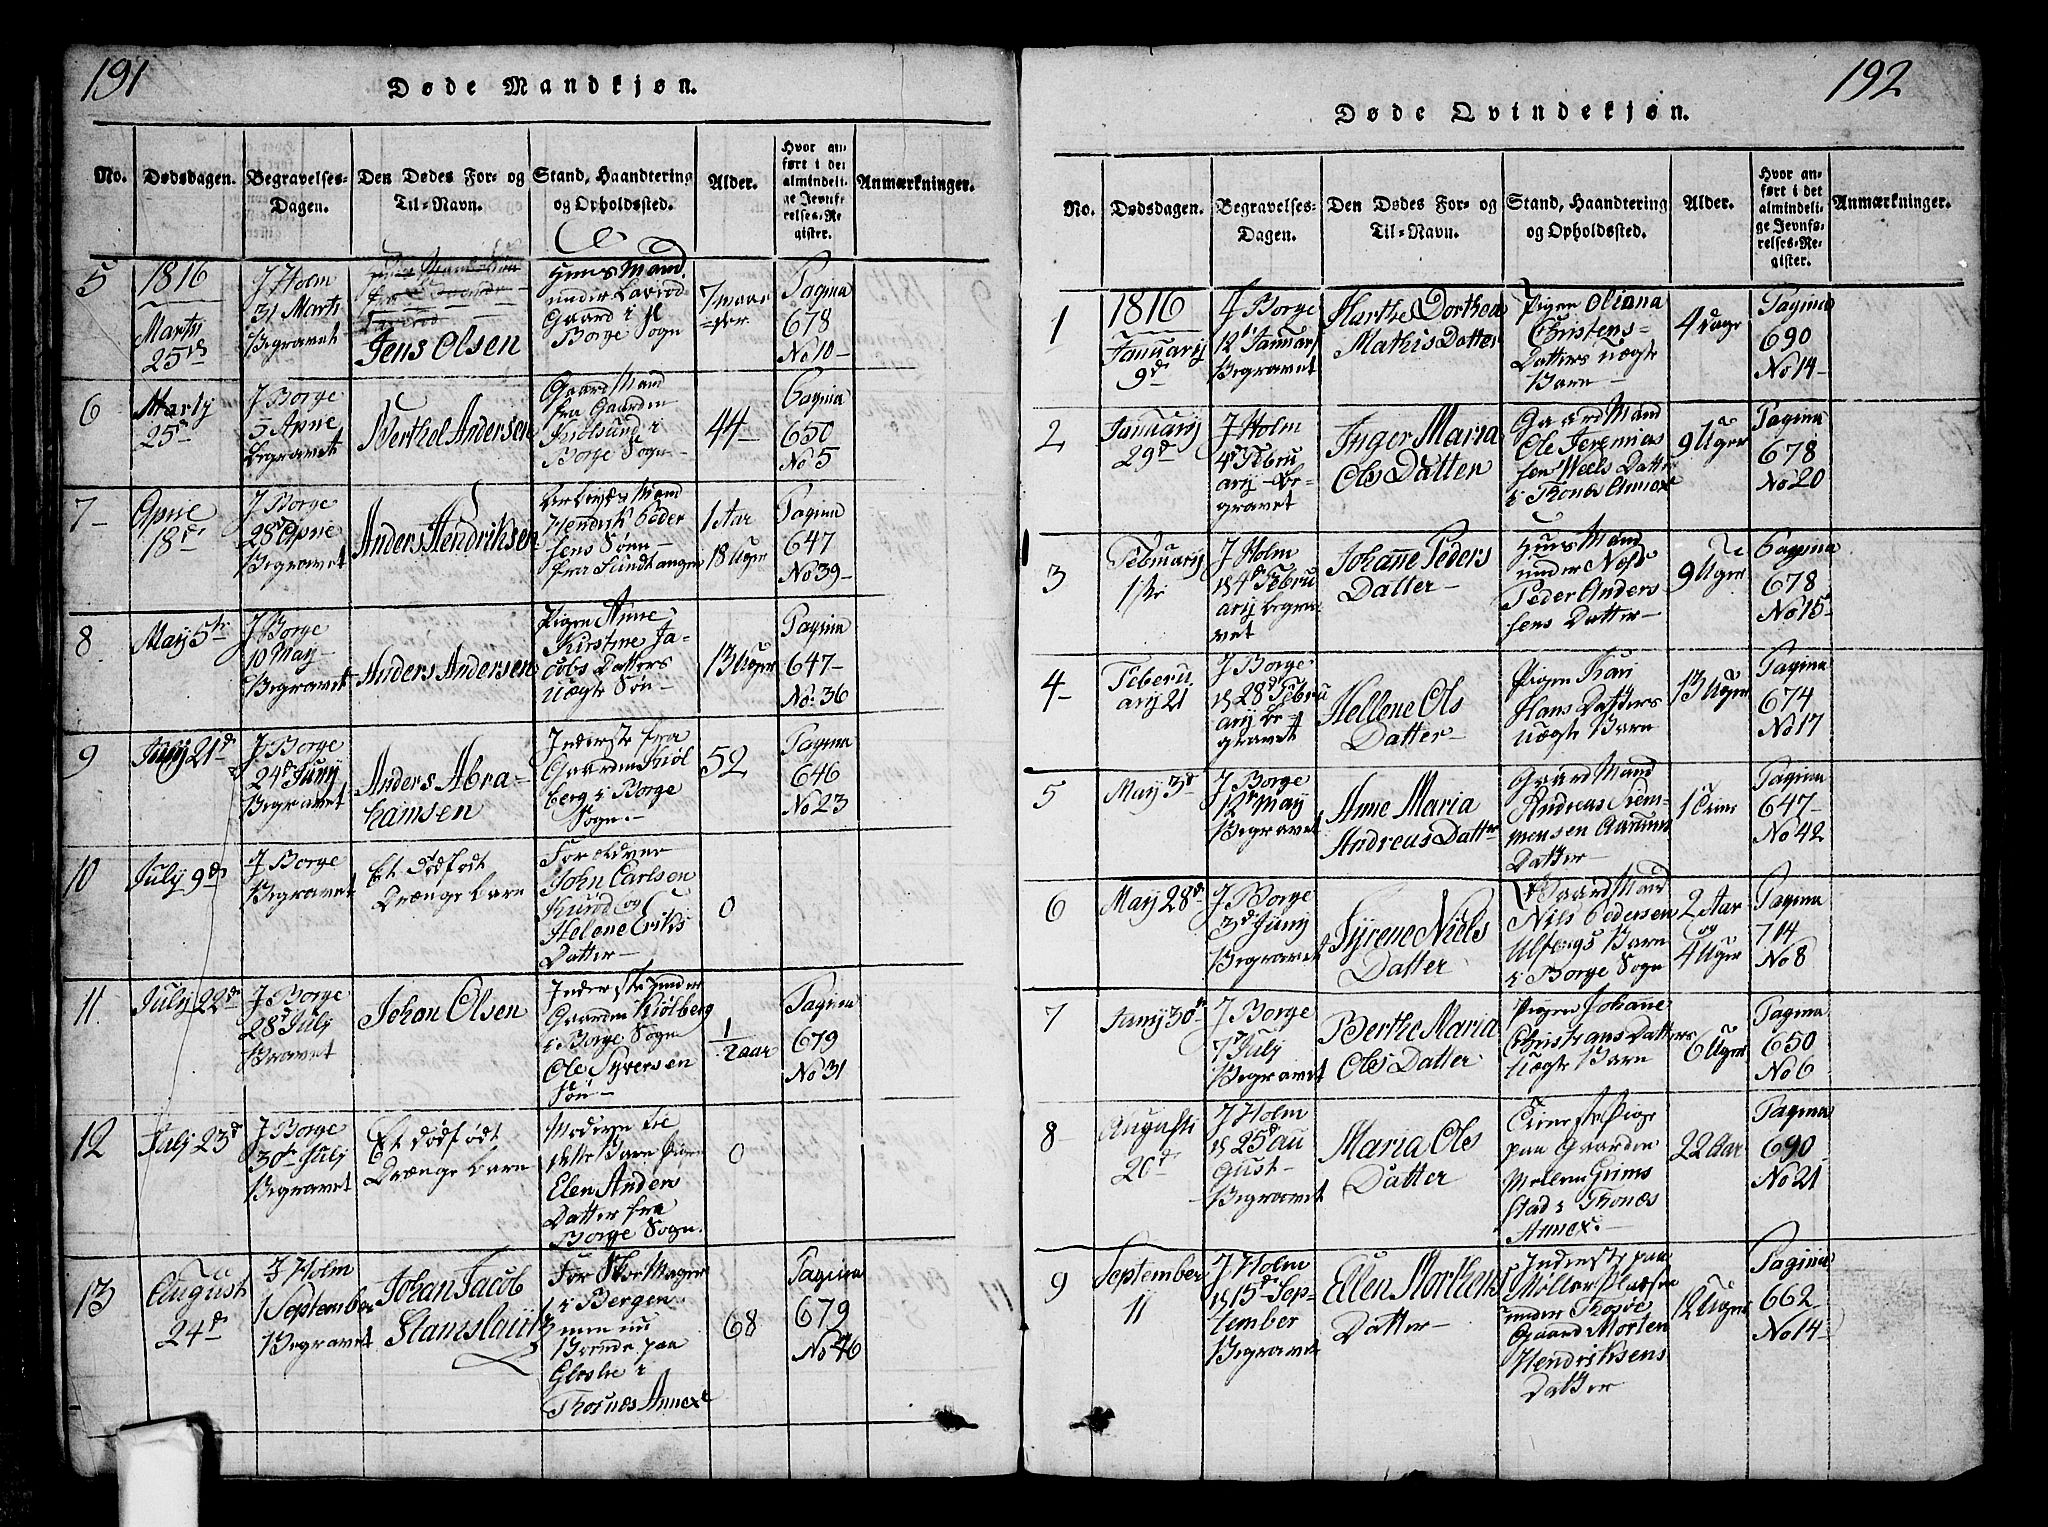 191
Døde Mandkjøn.
No.
Dødsdagen.
Begravelses-
Dagen.
Den Dødes For- og
Til-Navn.
Stand, Haandtering
og Opholdssted.
Alder.
Hvor an-
ført i det
almindeli-
ge Jevnfø-
relses-Re-
gister.
Anmærkninger.
5
1816
Martij
25de
J Holm
31 Marts
Begravet
Jens Olsen
Huus Mand
under
Gaard i
Borge Sogn
Pagina
678
No 10
6
Martij
25d
J Borge
5 Aprie
begravet
Berthol Andersen
Gaard Mand
fra Gaarden
Borge Sogn
44
Pagina
650
No 5
7
Aprie
18d
J Borge
28d Aprie
Begravet
Anders Hendriksen
Hendrik Peder
sens Sønn
fra Sundtangen
1 Aar
18 Uger
Pagina
647
No 39
8
May 5te
J Borge
10 May
Begravet
Anders Andersen
Pigen Anne
Kirstine Ja-
cobs Datters
uægte Søn
13 Uger
Pagina
647
No: 36
9
Junij 21d
J Borge
24d Junij
Begravet
Anders Abra-
hamsen
Inderste fra
Gaarden Kiøl
berg i Borge
Sogn.
52
Pagina
646
No 23
10
July 9d
J Borge
Begravet
Et dødfødt
Drænge barn
Forældrer
John Carlsen
og
Helene Eriks
Datter
0
11
July 22de
J Borge
28d Julj
Bravet
Johan Olsen
Inderste under
Gaarden Kiølberg
i Borge Sogn
Ole Syversen
Søn
1/2 aar
Pagina
679
No 31
12
Julj 23d
J Borge
30te Julj
Begravet
Et dødfødt
Drænge barn
Moderen til
dette Barn Pigen
Elen Anders
Datter fra
Borge Sogn.
0
13
August
24d
J Holm
1 September
Begravet
Johan Jacob
Stanislaus
Før Skoe Mager
i Bergen
men nu
Boende paa
i
Thorsnæs Annex
68
Pagina
679
No 46
192
Døde Qvindekjøn.
No.
Dødsdagen.
Begravelses-
Dagen.
Den Dødes For- og
Til-Navn.
Stand, Haandtering
og Opholdssted.
Alder.
Hvor an-
ført i det
almindeli-
ge Jevnfø-
relses-Re-
gister.
Anmærkninger.
1
1816
Januarij
9d
J Borge
12 Januarj
Begravet
Marthe Dorthea
Mathis Datter
Pigen Oliana
Christens-
Datters uægte
Barn
4 Dage
Pagina
690
No 14
2
Januarij
29d
J Holm
4d Febru
arij Be-
gravet
Inger Maria
Ols Datter
Gaard Mand
Ole Jeremias
sen Datter
i Annex
9 Uger
Pagina
678
No 20
3
Februarij
1ste
J Holm
d 4de Febru
arij begra
vet
Johanne Peders
Datter
Huus Mand
under
Peder Anders
sens Datter
9 Uger
Pagina
678
No 15
4
Februa
arij 21
J Borge
d 28d Febru
arij be-
gravet
Hellene Ols
Datter
Pigen Kari
Hans Datters
uægte Barn
13 Uger
Pagina
674
No 17
5
May 3d
J Borge
12te May
Begravet
Anne Maria
Andreas Datter
Gaard Mand
Andreas
Datter
Pagina
647
No 42
6
May 28de
J Borge
3d Junij
Begravet
Syrene Niels
Datter
Gaard Mand
Nils Pedersen
Barn
i Borge Sogn
2 Aar
og
4 Uger
Pagina
714
No 8
7
Junij 30te
J Borge
7 Julj
Begravet
Berthe Maria
Ols Datter
Pigen Johanne
Christians Datters
uægte Barn
6 Uger
Pagina
650
No 6
8
Augusti
20d
J Holm
d 25d Au
gust
Begravet
Maria Ols
Datter
Tieneste Pige
paa Gaarden
Grims
stad i Thosnæs
Annex.
22 Aar
Pagina
690
No 21
9
September
11
J Holm
d 15d Sep-
tember
Begravet
Ellen Morthens
Datter
Inderste paa
under
Gaard Morten
Hendriksens
Datter
12 Uger
Pagina
662
No 14